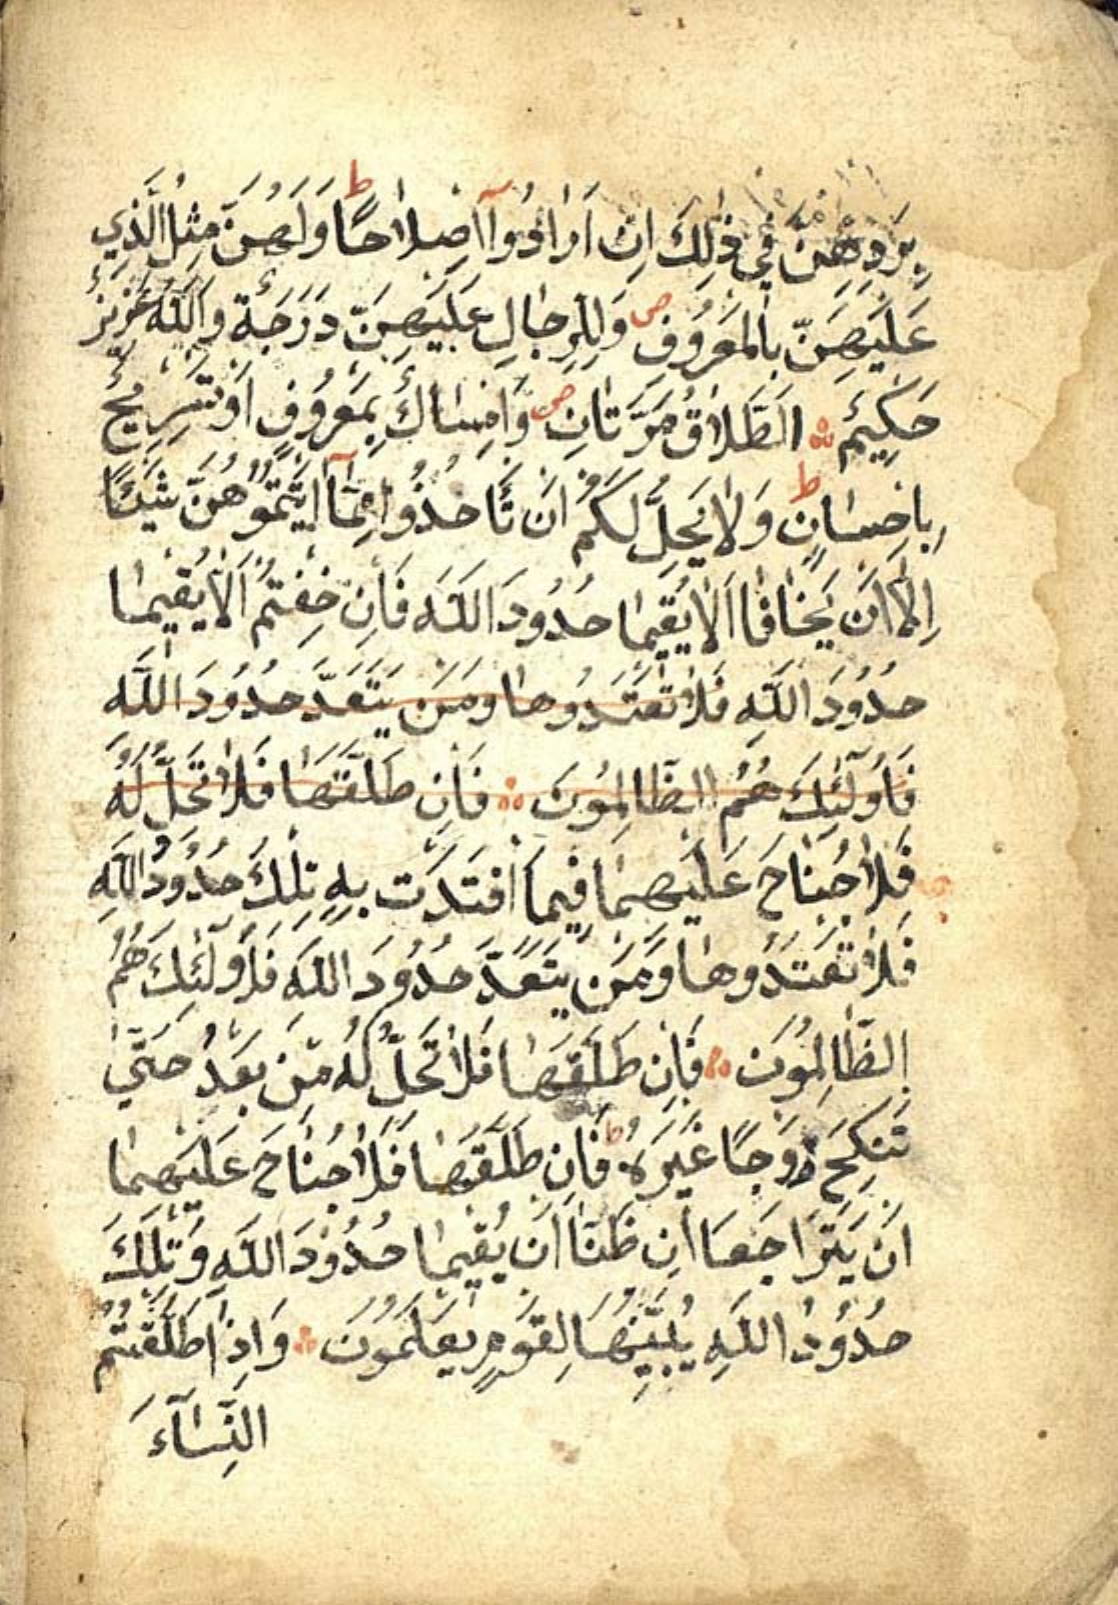 بِرَدِّهِنَّ فِي ذٰلِكَ اِنْ اَرَادُوٓا اِصْلَاحًا ط وَلَهُنَّ مِثْلُ الَّذِي
عَلَيْهِنَّ بِالْمَعْرُوفِ ص وَلِلرِّجَالِ عَلَيْهِنَّ دَرَجَةٌ وَاللّٰهُ عَزِيزٌ
حَكِيمٌ ۞ اَلطَّلَاقُ مَرَّتَانِ ص وَاِمْسَاكٌ بِمَعْرُوفٍ اَوْ تَسْرِيحٌ
بِاِحْسَانٍ ط وَلَا يَحِلُّ لَكُمْ اَنْ تَأْخُذُوا مِمَّٓا اٰتَيْتُمُوهُنَّ شَيْئًا
اِلَّا اَنْ يَخَافَا اَلَّا يُقِيمَا حُدُودَ اللّٰهِ فَاِنْ خِفْتُمْ اَلَّا يُقِيمَا
حُدُودَ اللّٰهِ فَلَا تَعْتَدُوهَا وَمَنْ يَتَعَدَّ حُدُودَ اللّٰهِ
فَاُولٰٓئِكَ هُمُ الظَّالِمُونَ ۞ فَاِنْ طَلَّقَهَا فَلَا تَحِلُّ لَهُ
فَلَا جُنَاحَ عَلَيْهِمَا فِيمَا افْتَدَتْ بِهِ تِلْكَ حُدُودُ اللّٰهِ
فَلَا تَعْتَدُوهَا وَمَنْ يَتَعَدَّ حُدُودَ اللّٰهِ فَاُولٰئِكَ هُمُ
الظَّالِمُونَ ۞ فَاِنْ طَلَّقَهَا فَلَا تَحِلُّ لَهُ مِنْ بَعْدُ حَتّٰى
تَنْكِحَ زَوْجًا غَيْرَهُ ط فَاِنْ طَلَّقَهَا فَلَا جُنَاحَ عَلَيْهِمَا
اَنْ يَتَرَاجَعَا اِنْ ظَنَّا اَنْ يُقِيمَا حُدُودَ اللّٰهِ وَتِلْكَ
حُدُودُ اللّٰهِ يُبَيِّنُهَا لِقَوْمٍ يَعْلَمُونَ ۞ وَاِذَا طَلَّقْتُمُ
النِّسَآءَ